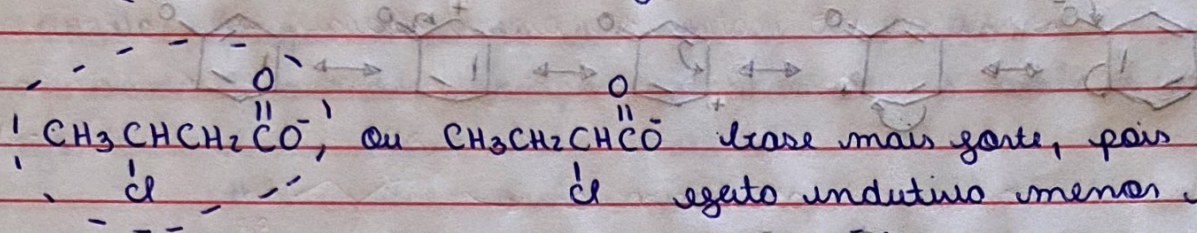 O O
CH3CHCH2CO⁻, ou CH3CH2CHCO⁻ base mais forte, pois
Cl Cl efeito indutivo menor.